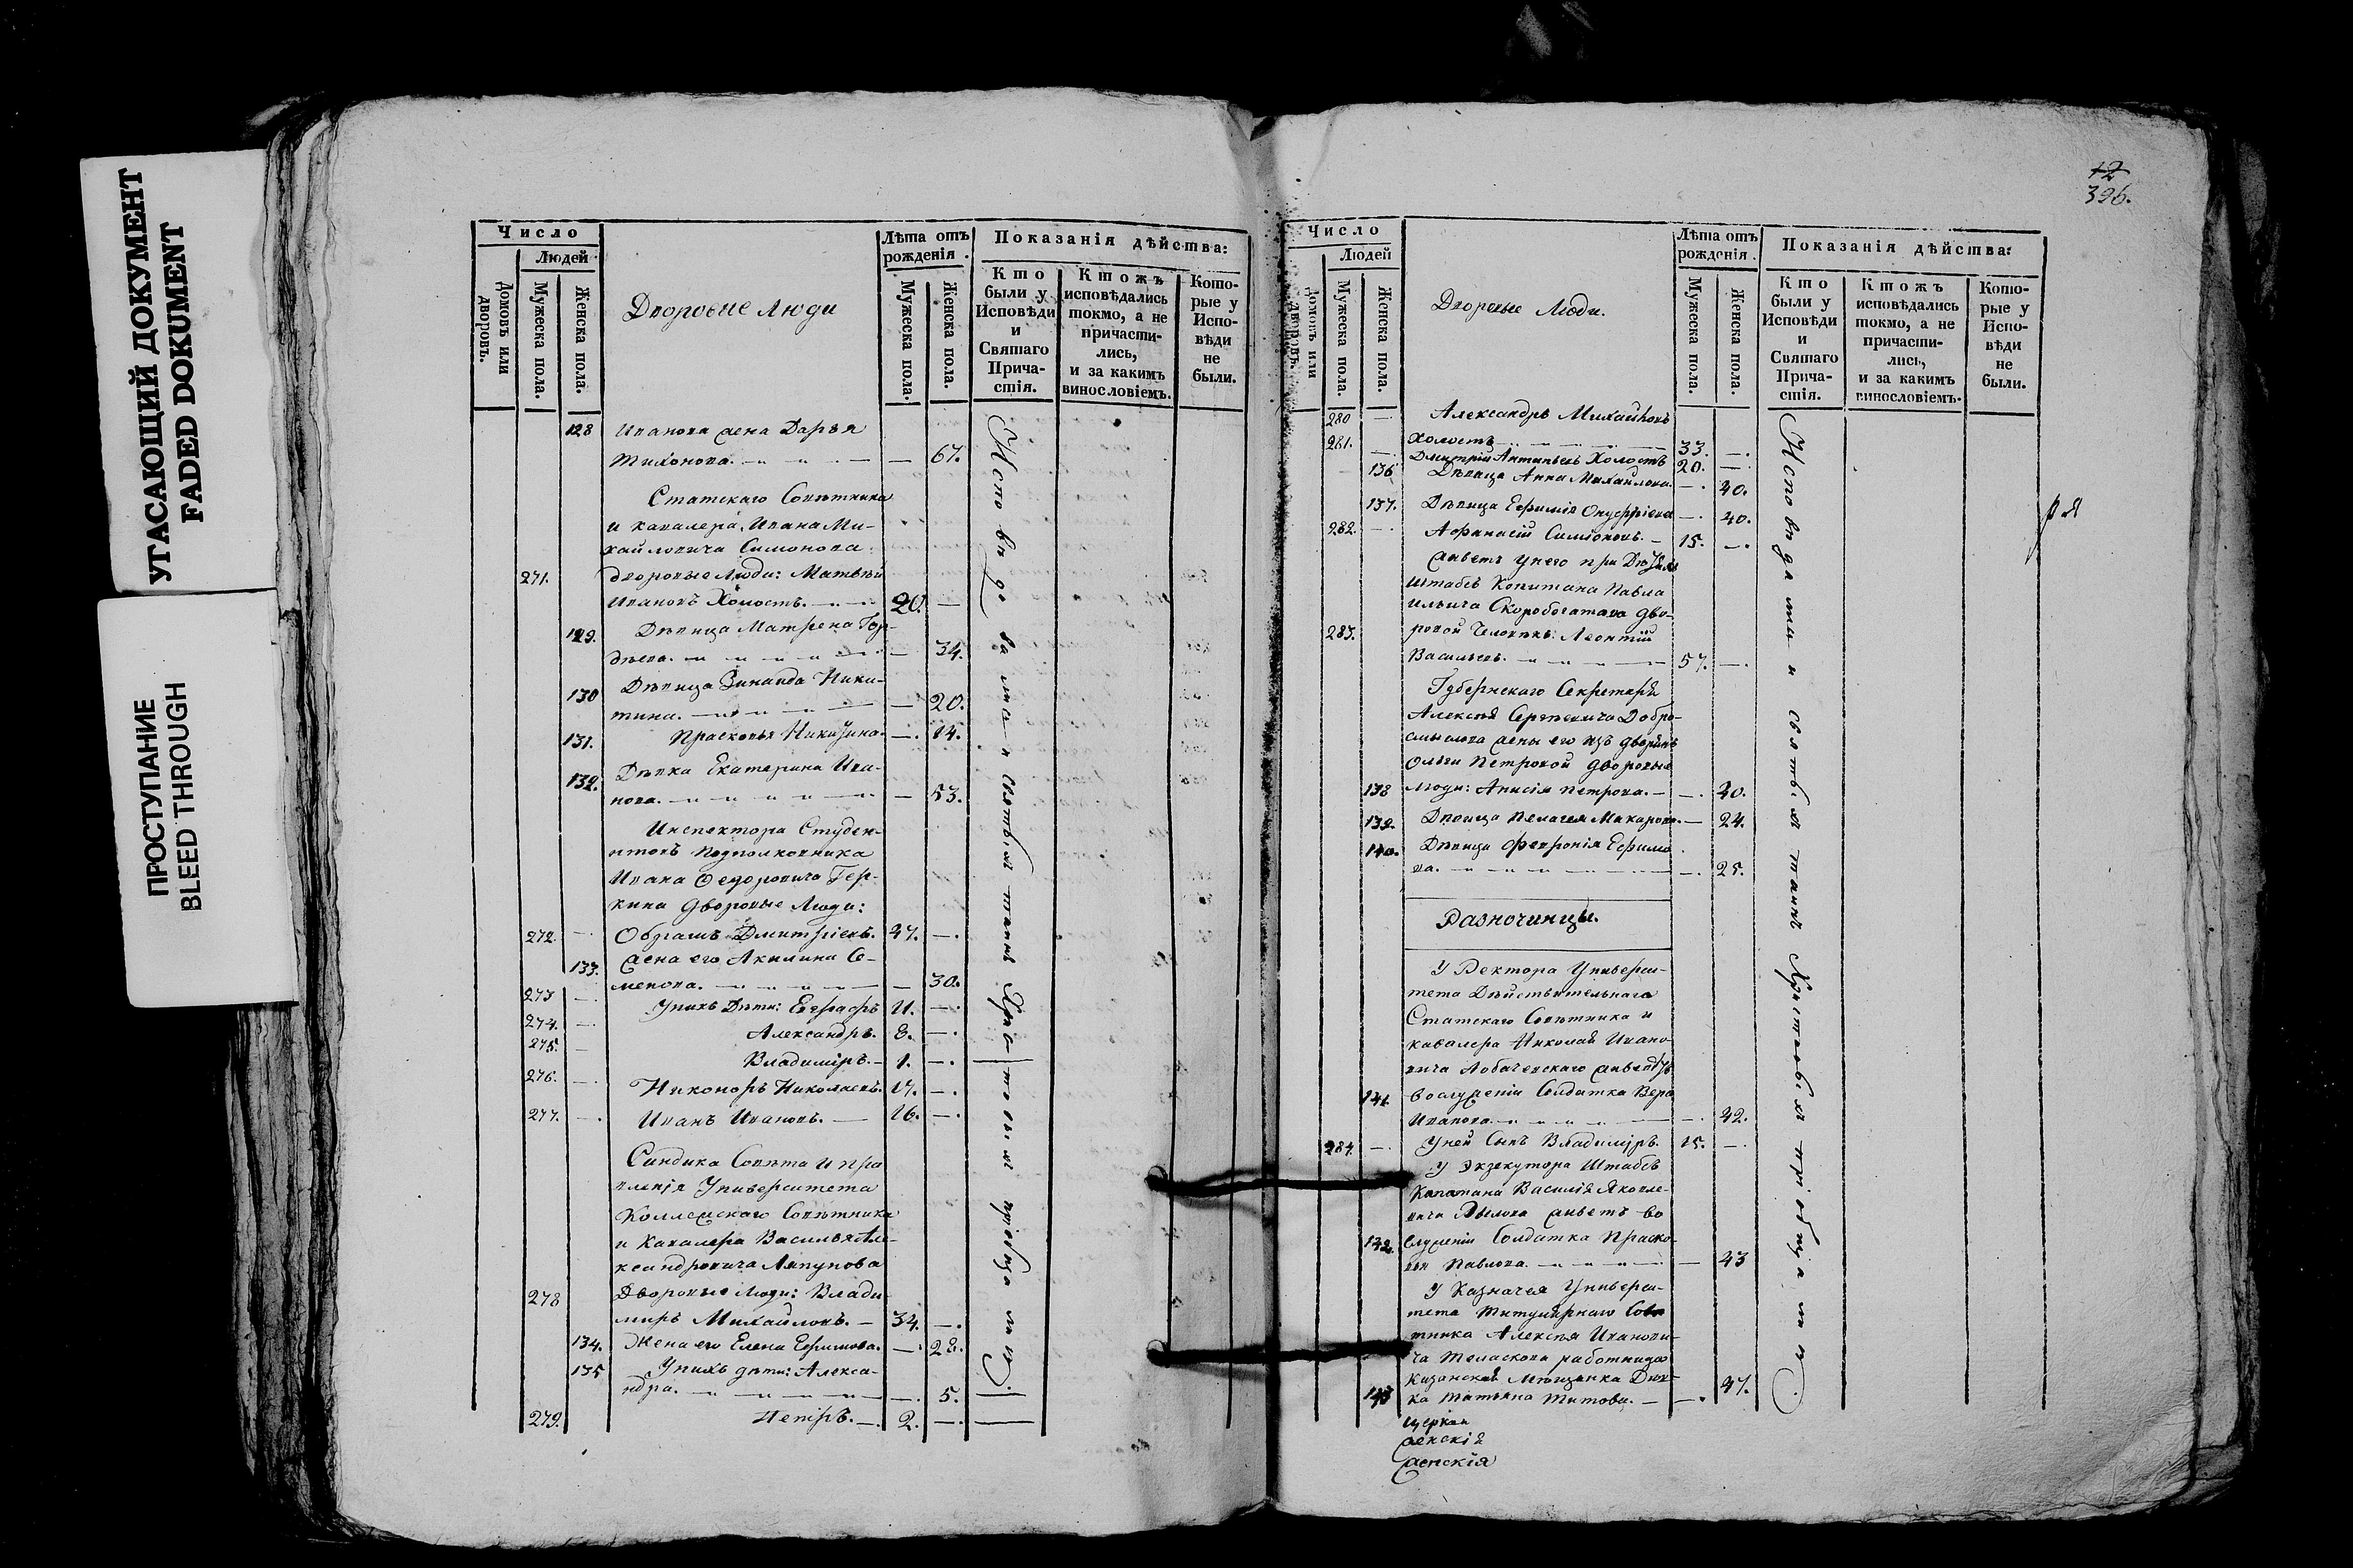 УГАСАЮЩИЙ ДОКУМЕНТ
FADED DOKUMENT
ПРОСТУПАНИЕ
BLEED THROUGH
Число
Людей
Домовъ или дворовъ.
Мужеска пола.
Женска пола.
Дворовые люди
Лѣта отъ рожденія.
Мужеска пола.
Женска пола.
Показанія дѣйства:
Кто были у Исповѣди и Святаго Причастія.
Ктожъ исповѣдались токмо, а не причастились, и за какимъ винословіемъ.
Которые у Исповѣди не были.
128 Иванова жена Дарья
Тихонова. — 67.
Статскаго Совѣтника
и кавалера Ивана Ми-
хайловича Симонова
271. дворовые люди: Матвѣй
Ивановъ Холостъ. 20. —
129. Дѣвица Матрена Гор-
дѣева. — 34.
130 Дѣвица Зинаида Ники-
тина. — 20.
131. Прасковья Никитина. —. 14.
132. Дѣвка Екатерина Ива-
нова. — 53.
Инспектора Студен-
товъ Подполковника
Ивана Ѳедоровича Гер-
кина дворовые люди:
272. —. Дмитріевъ. 47. —.
133. Жена его Акилина Се-
менова. — 30.
273 —. У нихъ дѣти: Евграфъ 11. —.
274. —. Александръ. 8. —.
275. — Владиміръ. — 1. —.
276. —. Никоноръ Николаевъ. 17. —.
277. —. Иванъ Ивановъ. — 16. —.
Синдика Совѣта и пра
вленія Университета
Коллежскаго Совѣтника
и Кавалера Василья Але-
ксандровича Ляпунова
278 Дворовые люди: Влади
миръ Михайловъ. — 34. —.
134. Жена его Елена Ефимова. —. 28.
135 У нихъ дѣти: Алекса-
ндра. —. 5.
279. Петръ. —. 2. —.
Исповѣдовались и святыхъ таинъ Христовыхъ пріобщались.
12
396.
Число
Людей
Домовъ или дворовъ.
Мужеска пола.
Женска пола.
Дворовые Люди.
Лѣта отъ рожденія.
Мужеска пола.
Женска пола.
Показанія дѣйства:
Кто были у Исповѣди и Святаго Причастія.
Ктожъ исповѣдались токмо, а не причастились, и за какимъ винословіемъ.
Которые у Исповѣди не были.
280 — Александръ Михайловъ
281. —. Холостъ 33. —.
Дмитрій Антипьевъ Холостъ 20. —.
136 Дѣвица Анна Михайлова. —. 40.
137. Дѣвица Ефимія Онуфріева —. 40.
282. —. Афанасій Симіоновъ. — 15. —.
живетъ у него при
Штабсъ Капитана Павла
Ильича Скоробогатова дво-
283. ровой Человѣкъ: Леонтій
Васильевъ. 57. —.
Губернскаго Секретаря
Алексѣя Сергѣевича Добро-
смыслова жены его изъ дворянъ
Ольги Петровой дворовые
138 люди: Анисія Петрова. — —. 40.
139. Дѣвица Пелагея Макарова. — 24.
140. Дѣвица Февронія Ефимо
ва. —. 25.
Разночинцы.
У Ректора Универси-
тета Дѣйствительнаго
Статскаго Совѣтника и
кавалера Николая Ивано-
вича Лобачевскаго живетъ
141. во служеніи Солдатка Вера
Иванова. —. 42.
284. —. У ней сынъ Владиміръ. 15. —.
У Экзекутора Штабсъ
Капитана Василія Яковле-
вича живетъ во
142. служеніи Солдатка Праско-
вья Павлова. — 43
У Казначея Универси-
тета Титулярнаго Совѣ
тника Алексѣя Иванови-
ча работница
Казанская Мѣщанка Дѣв-
143 ка Татьяна Титова. — —. 47.
Исповѣдались и святыхъ таинъ Христовыхъ пріобщались.
церкви
женскія
женскія